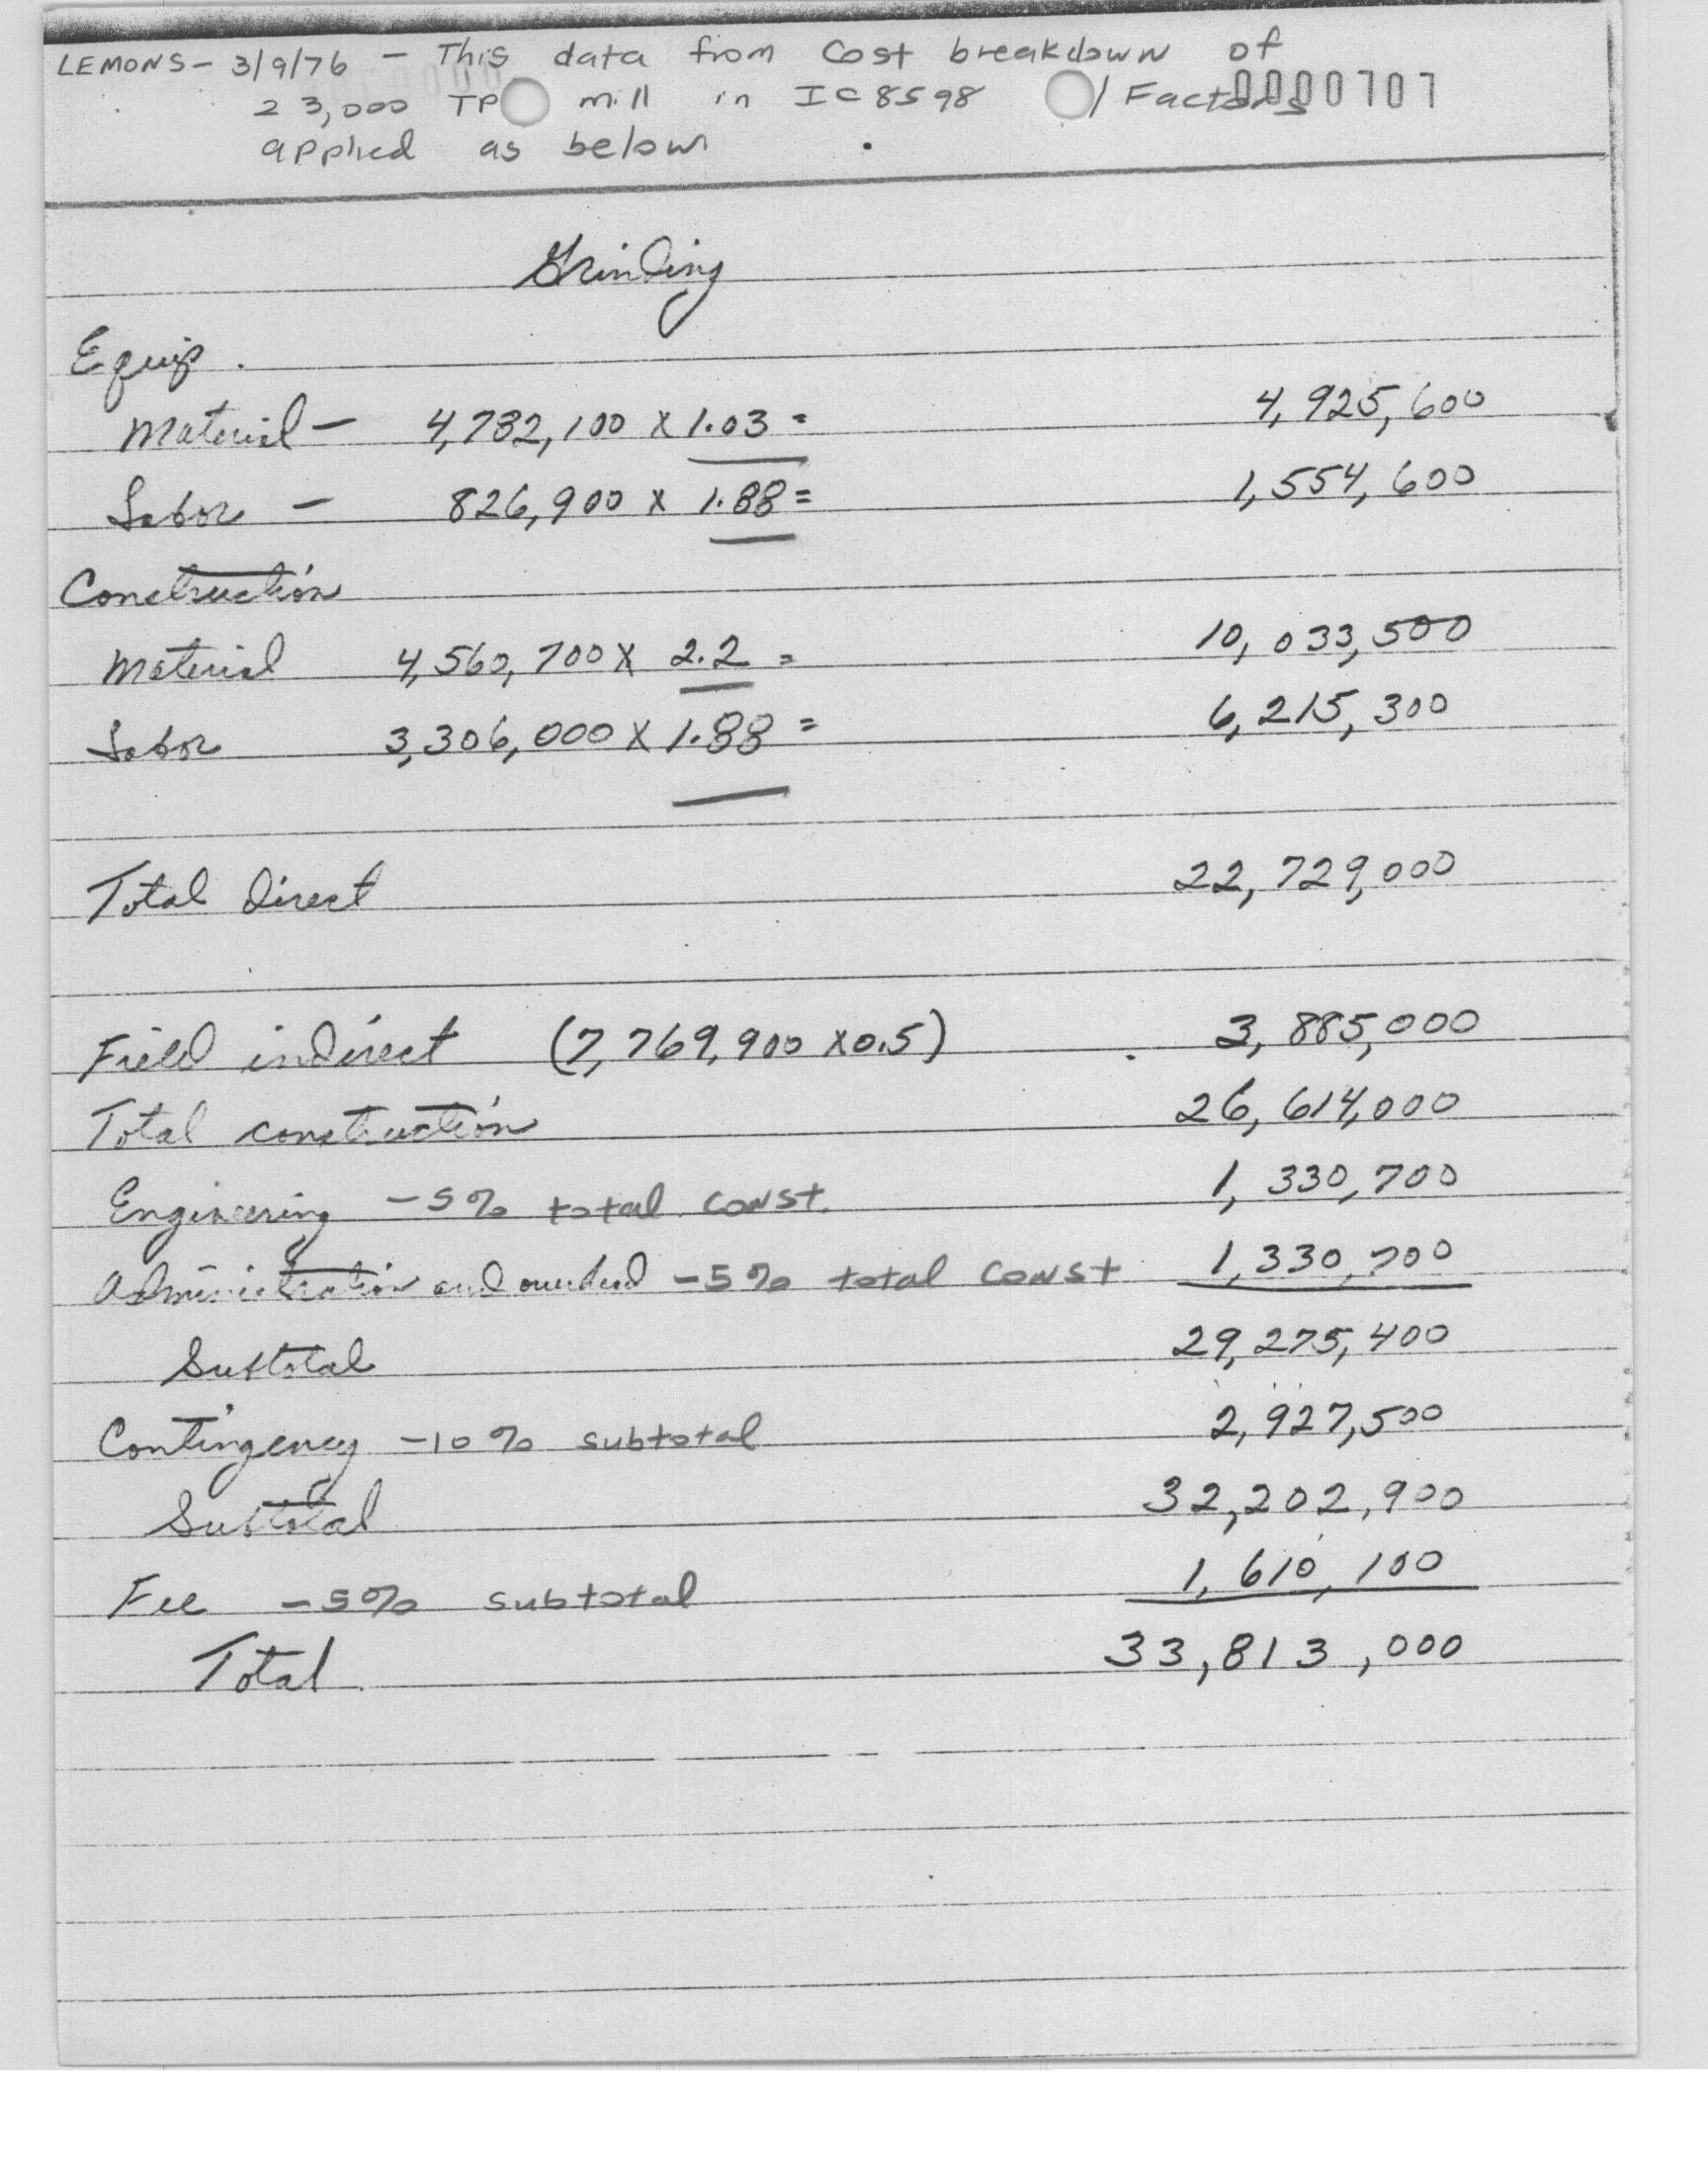 LEMONS - 3/9/76 - This data from Cost breakdown of
23,000 TP mill in IC8598 / Factors 0000707
applied as below
Grinding
Equip.
Material - 4,782,100 x 1.03 = 4,925,600
Labor - 826,900 x 1.88 = 1,554,600
Construction
Material 4,560,700 x 2.2 = 10,033,500
Labor 3,306,000 x 1.88 = 6,215,300
Total direct 22,729,000
Field indirect (7,769,900 x 0.5) 3,885,000
Total construction 26,614,000
Engineering - 5% total const. 1,330,700
Administration and overhead - 5% total const 1,330,700
Subtotal 29,275,400
Contingency - 10% subtotal 2,927,500
Subtotal 32,202,900
Fee - 5% subtotal 1,610,100
Total 33,813,000